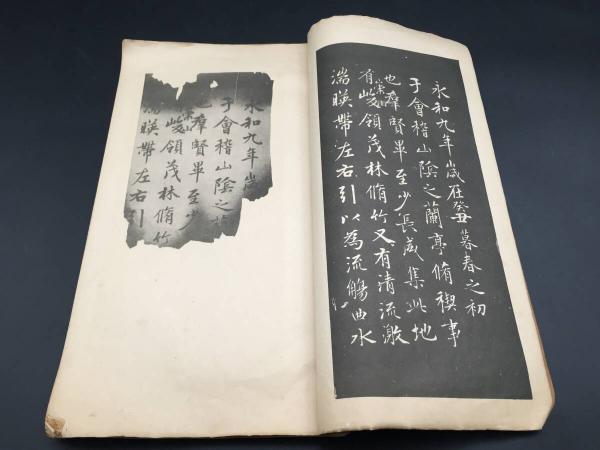 永和九年歲在癸丑暮春之初
于會稽山陰之蘭亭脩稧事
也羣賢畢至少長咸集此地
有崇山峻領茂林脩竹又有清流激
湍暎帶左右引以為流觴曲水
永和九年歲
于會稽山陰之
也羣賢畢至少
有崇山峻領茂林脩竹
湍暎帶左右引